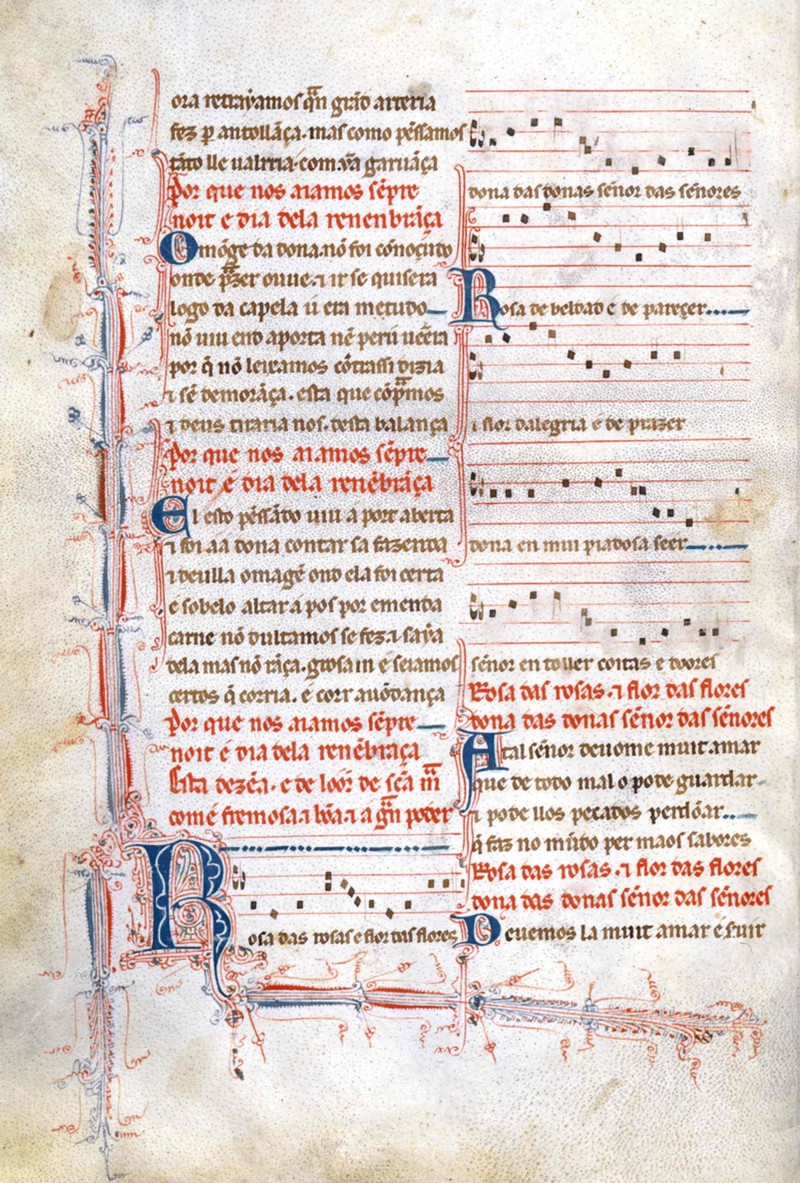 ora retrayamos q̄n grād arteria
fez p̄ antollāça. mas como pēssamos
tāto lle ualrria com v̄a garuāça
Por que nos aiamos sēpre
noit e dia dela renenbrāça
Omōge da dona. nō foi cōnoçudo
onde p̄zer ouue. ⁊ ir se quisera
logo da capela u era metudo
nō uiu end aporta nē per u uēera
por q̄ nō leixamos
⁊ sē demorāça. esta que cōp̄mos
⁊ deus tiraria nos. desta balança
Por que nos aiamos sēpre
noit e dia dela renēbrāça
El esto pēssādo uiu a port aberta
⁊ foi aa dona contar sa fazenda
⁊ deulla omagē ond ela foi certa
e sobelo altar a pos por emenda
carne nō dultamos se fez. ⁊ saȳa
dela mas nō rāça. grossa in e seiamos
certos q̄ corria. e corr auōdança
Por que nos aiamos sēpre
noit e dia dela renēbraça
Esta dezēa. e de loor de sc̄a m̄
com e fremosa. ⁊ bōa. ⁊ a ḡn poder
Rosa das rosas e flor das flores
dona das donas señor das señores
Rosa de beldad e de pareçer
⁊ flor dalegria e de prazer
dona en mui piadosa seer
señor en toller coitas e doores
Rosa das rosas. ⁊ flor das flores
dona das donas señor das señores
Atal señor deu ome muit amar
que de todo mal o pode guardar
⁊ pode llos pecados perdōar
q̄ faz no mūdo per maos sabores
Rosa das rosas. ⁊ flor das flores
dona das donas señor das señores
Deuemos la muit amar e ſuir